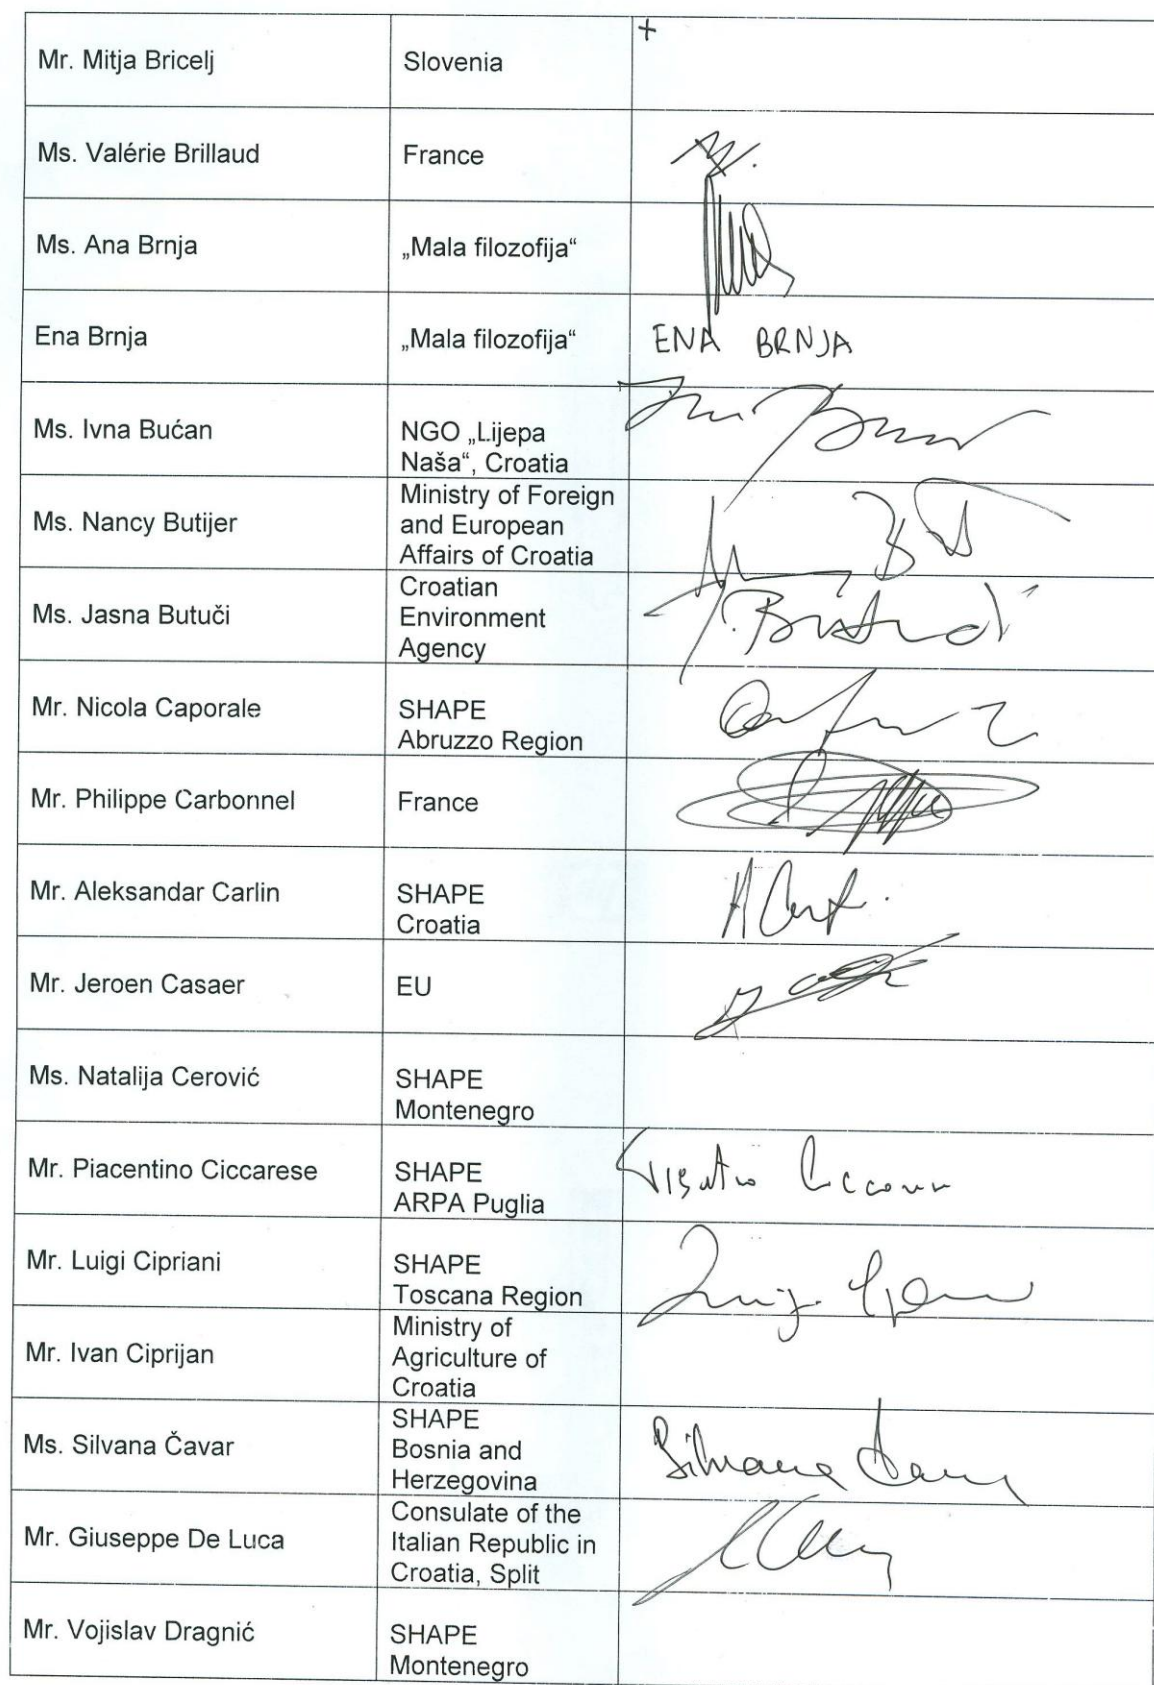 Mr. Mitja Bricelj
Slovenia
+
Ms. Valérie Brillaud
France
Ms. Ana Brnja
„Mala filozofija“
Ena Brnja
„Mala filozofija“
ENA BRNJA
Ms. Ivna Bućan
NGO „Lijepa
Naša“, Croatia
Ms. Nancy Butijer
Ministry of Foreign
and European
Affairs of Croatia
Ms. Jasna Butuči
Croatian
Environment
Agency
Mr. Nicola Caporale
SHAPE
Abruzzo Region
Mr. Philippe Carbonnel
France
Mr. Aleksandar Carlin
SHAPE
Croatia
Mr. Jeroen Casaer
EU
Ms. Natalija Cerović
SHAPE
Montenegro
Mr. Piacentino Ciccarese
SHAPE
ARPA Puglia
Mr. Luigi Cipriani
SHAPE
Toscana Region
Mr. Ivan Ciprijan
Ministry of
Agriculture of
Croatia
Ms. Silvana Čavar
SHAPE
Bosnia and
Herzegovina
Silvana
Mr. Giuseppe De Luca
Consulate of the
Italian Republic in
Croatia, Split
Mr. Vojislav Dragnić
SHAPE
Montenegro